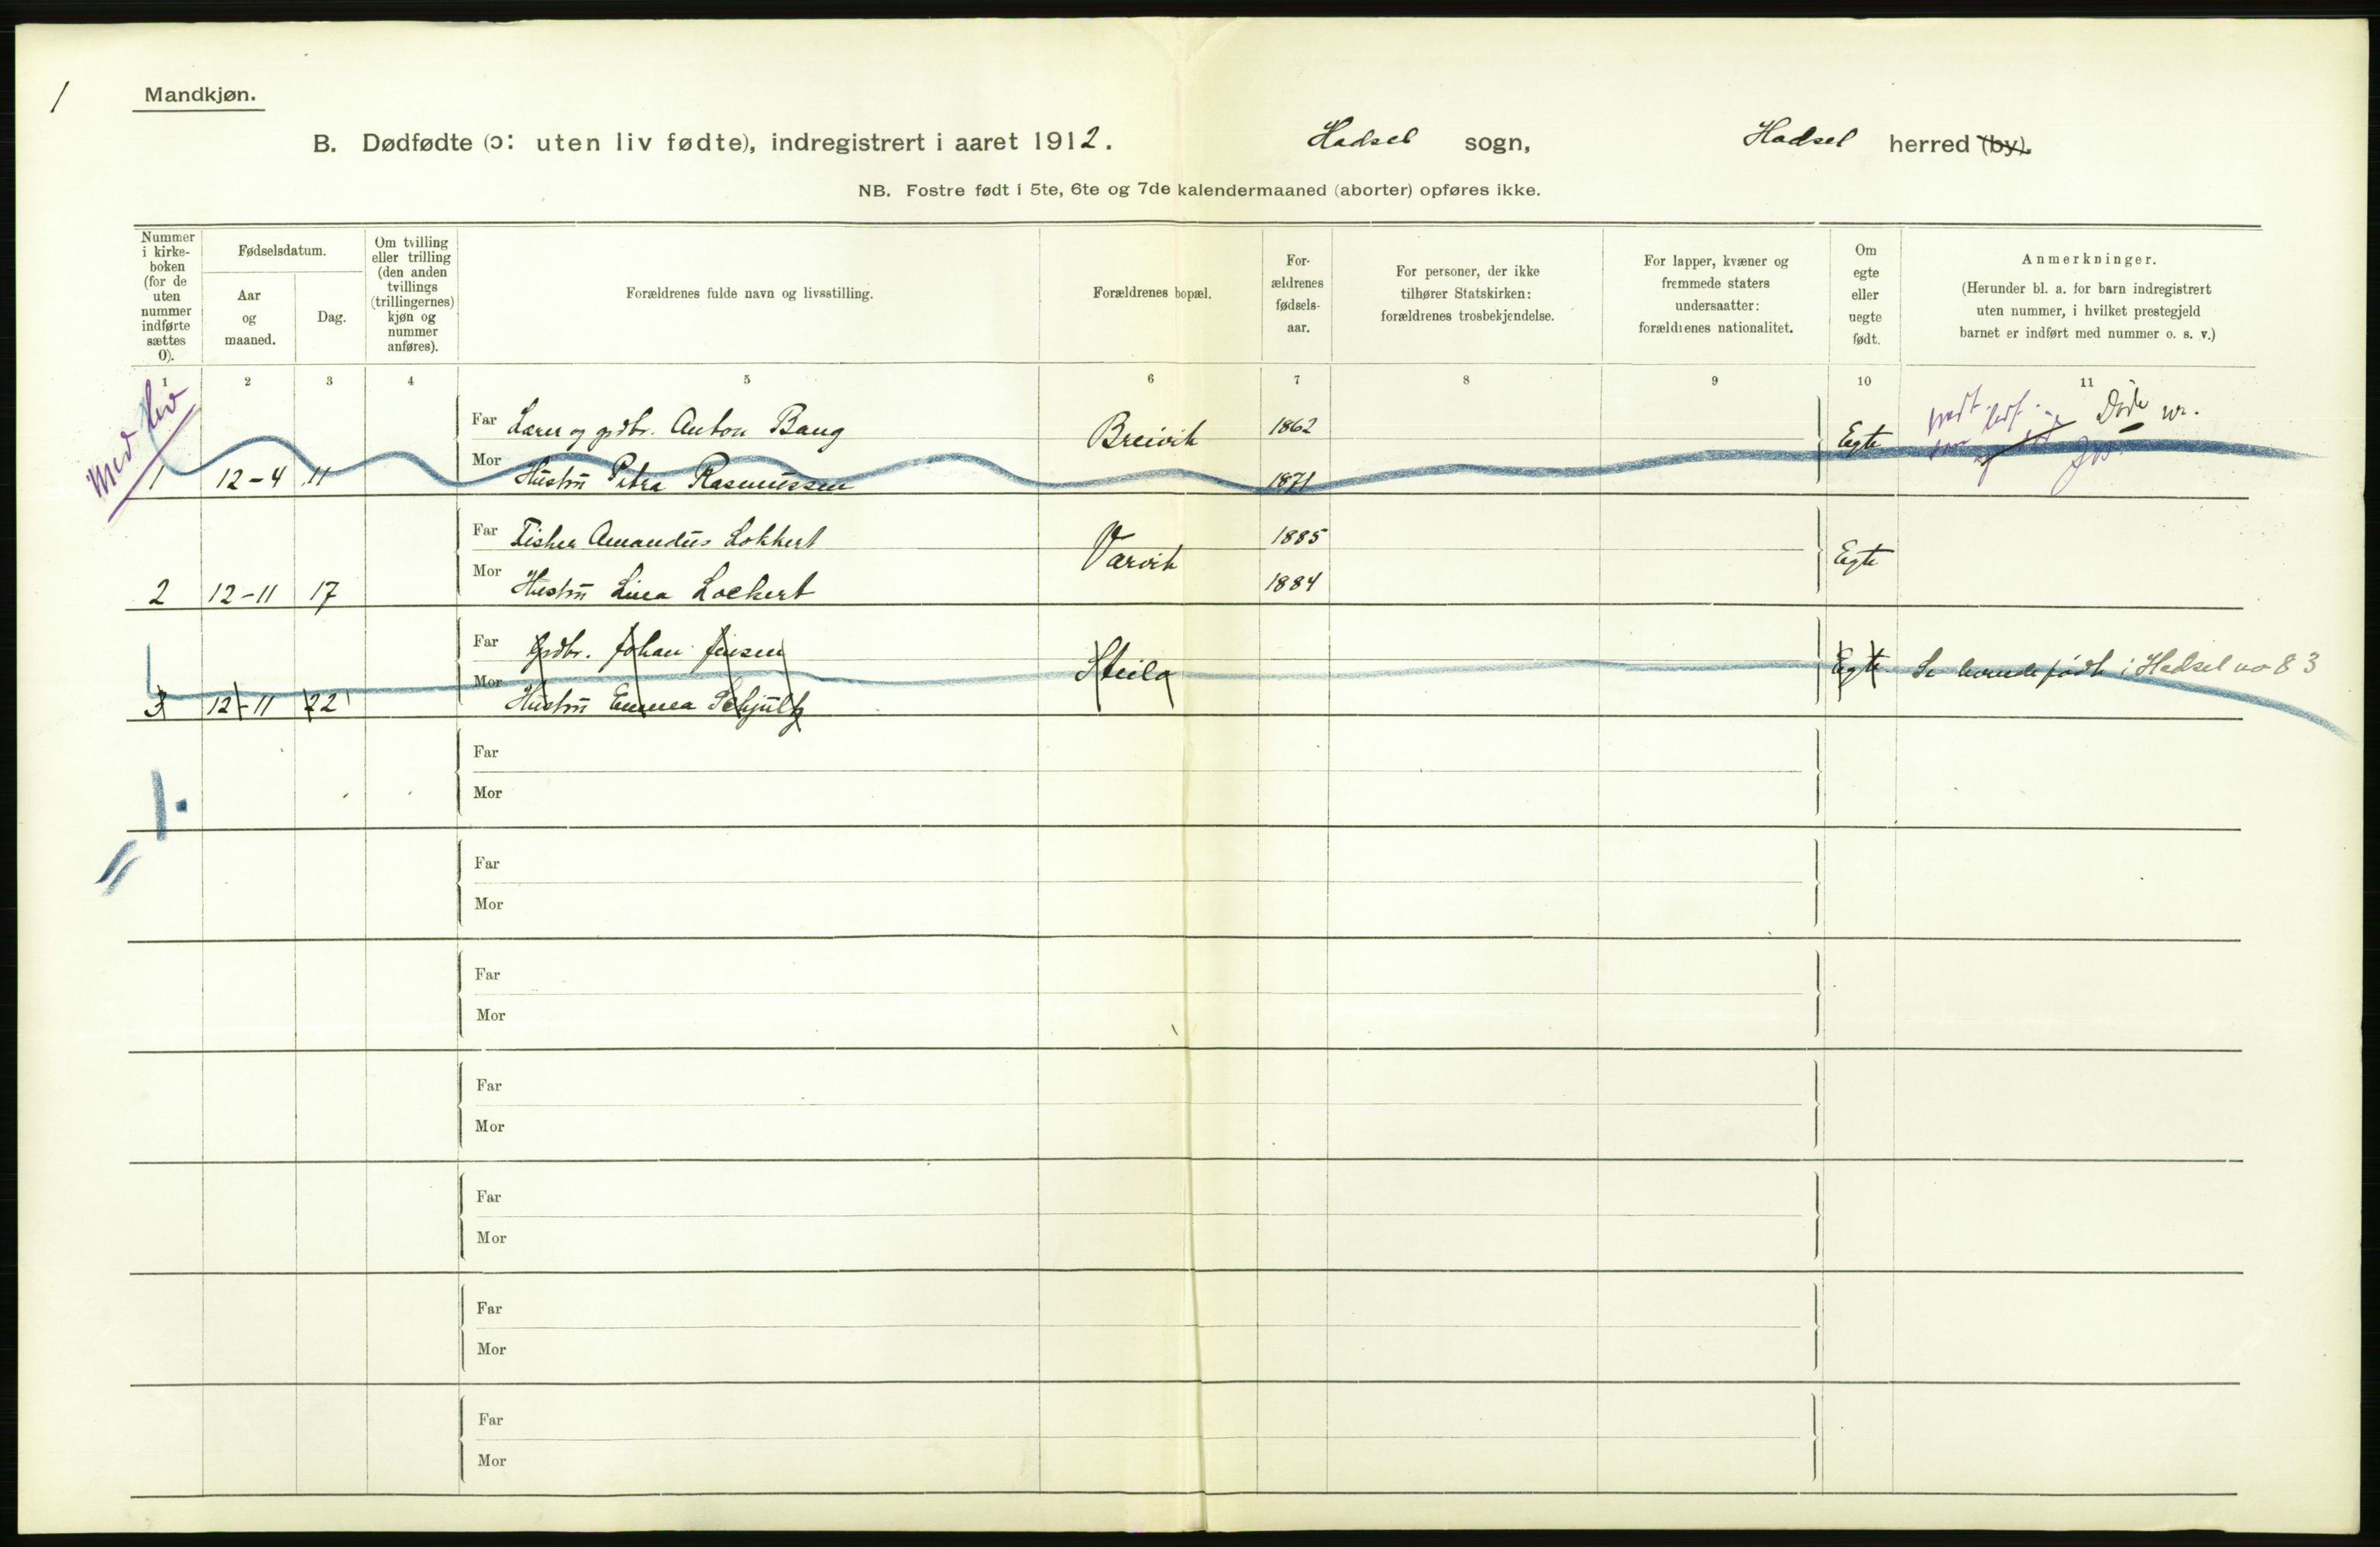 1
Mandkjøn.
B. Dødfødte (ɔ: uten liv fødte), indregistrert i aaret 1912. Hadsel sogn, Hadsel herred (by).
NB. Fostre født i 5te, 6te og 7de kalendermaaned (aborter) opføres ikke.
Nummer i kirke-boken (for de uten nummer indførte sættes 0).
Fødselsdatum.
Aar og maaned.
Dag.
Om tvilling eller trilling (den anden tvillings (trillingernes) kjøn og nummer anføres).
Forældrenes fulde navn og livsstilling.
Forældrenes bopæl.
For-ældrenes fødsels-aar.
For personer, der ikke tilhører Statskirken: forældrenes trosbekjendelse.
For lapper, kvæner og fremmede staters undersaatter: forældrenes nationalitet.
Om egte eller uegte født.
Anmerkninger.
(Herunder bl. a. for barn indregistrert uten nummer, i hvilket prestegjeld barnet er indført med nummer o. s. v.)
1 2 3 4 5 6 7 8 9 10 11
Med liv
Far Lærer og grdbr. Anton Baug Breivik 1862 Egte Døde nr.
1 12-4 11 Mor Hustru Petra Rasmussen 1871
Far Fisker Amandus Lokkert Varvik 1885 Egte
2 12-11 17 Mor Hustru Lina Lockert 1884
Far Grdbr. Johan Jensen Steilo Egte Se levende født i Hadsel no 83
3 12-11 22 Mor Hustru Emma Schjultz
Far
Mor
1.
Far
Mor
Far
Mor
Far
Mor
Far
Mor
Far
Mor
Far
Mor